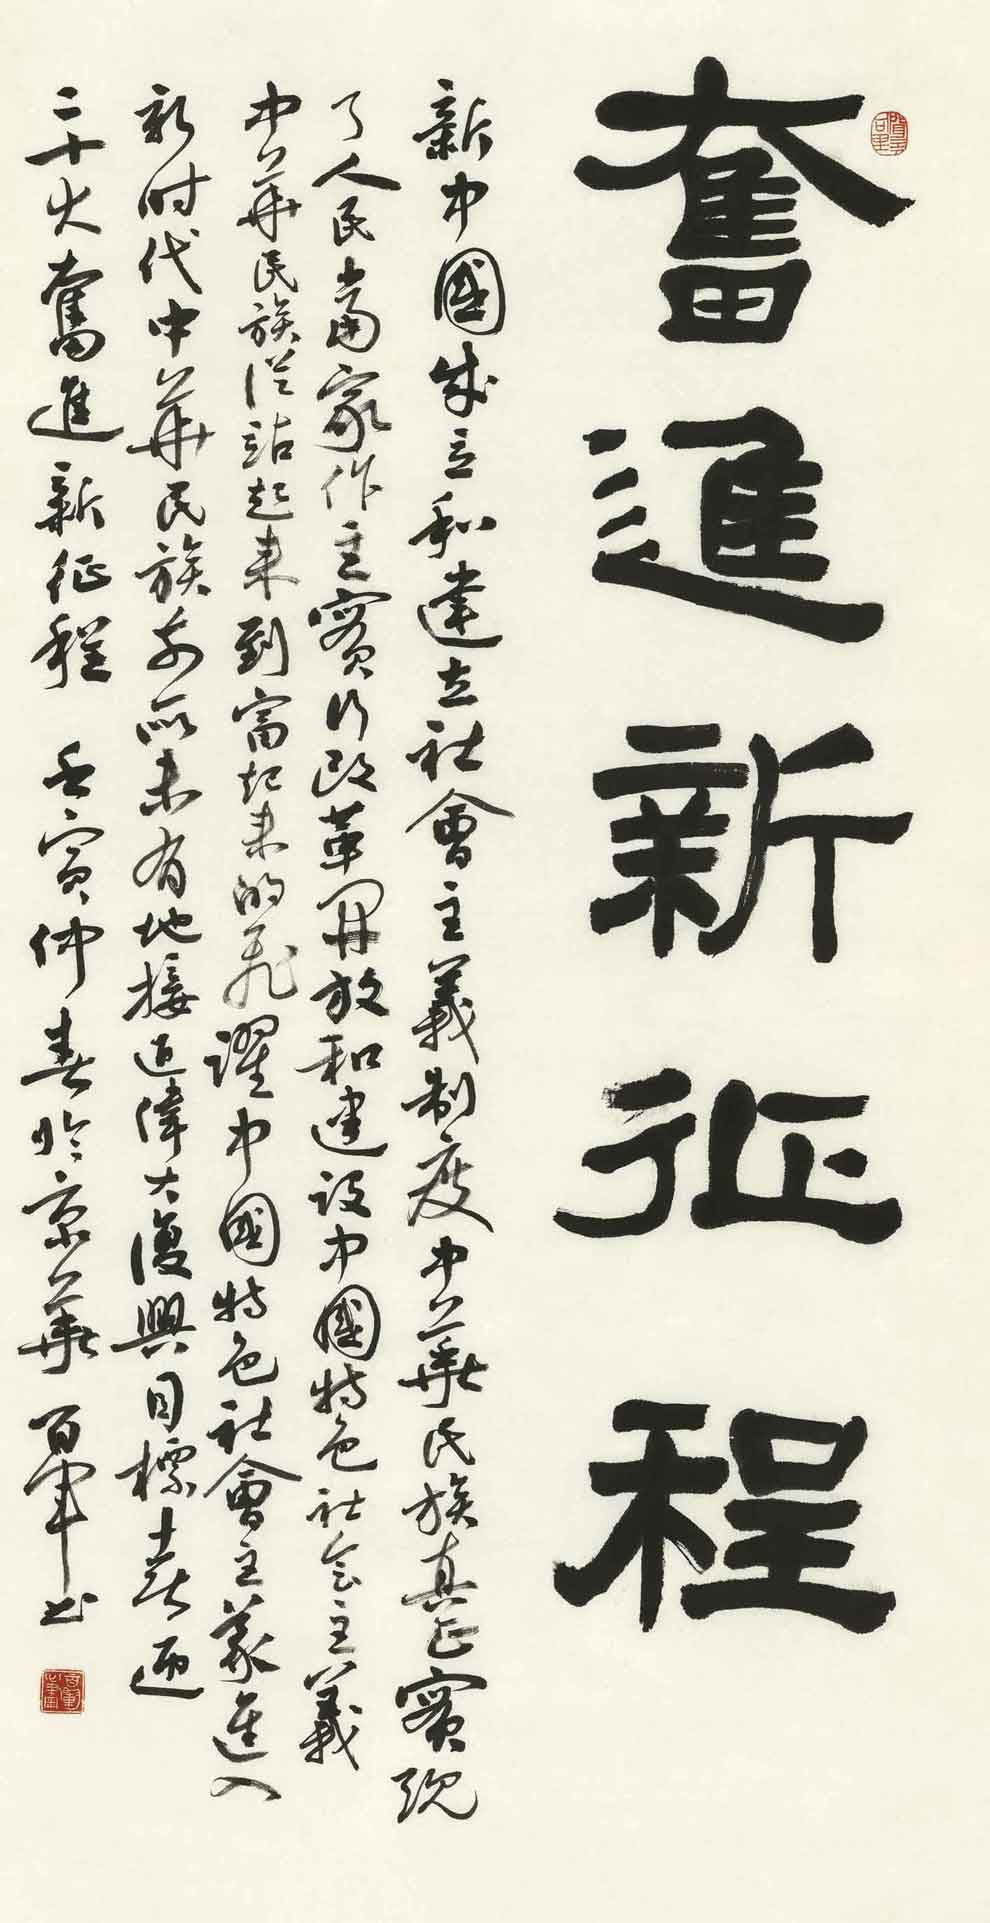 奮進新征程
新中國成立和建立社會主義制度中華民族真正實現
了人民當家作主實行改革開放和建設中國特色社会主義
中華民族從站起来到富起来的飛躍中國特色社會主義進入
新时代中華民族前所未有地接近偉大復興目標喜迎
二十大奮進新征程 壬寅仲春於京華 百軍书